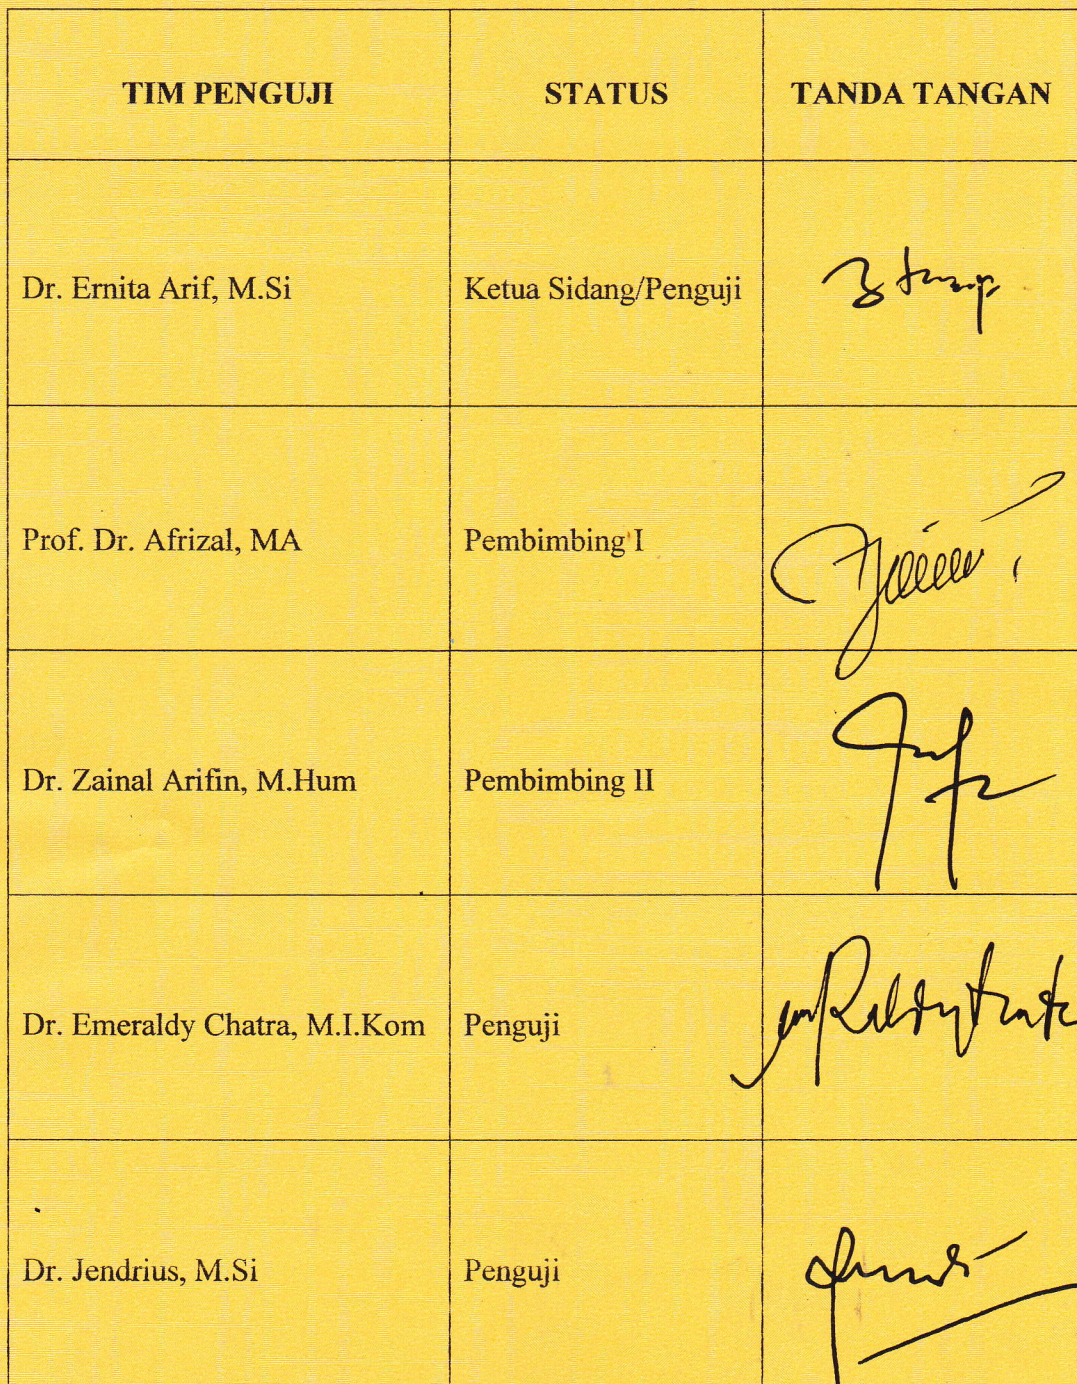 TIM PENGUJI STATUS TANDA TANGAN
Dr. Ernita Arif, M.Si Ketua Sidang/Penguji
Prof. Dr. Afrizal, MA Pembimbing I
Dr. Zainal Arifin, M.Hum Pembimbing II
Dr. Emeraldy Chatra, M.I.Kom Penguji
Dr. Jendrius, M.Si Penguji